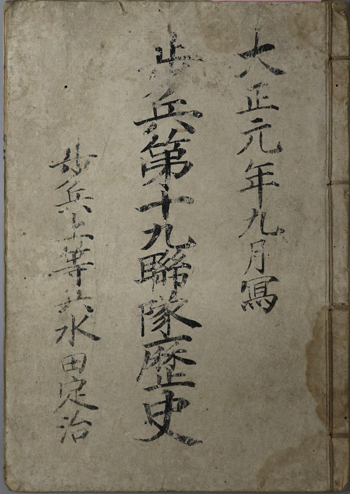 大正元年九月寫
歩兵第十九聯隊歴史
歩兵上等兵永田定治